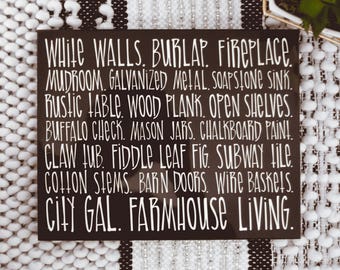 WHITE WALLS. BURLAP. FIREPLACE.
MUDROOM. GALVANIZED METAL. SOAPSTONE SINK.
RUSTIC TABLE. WOOD PLANK. OPEN SHELVES.
BUFFALO CHECK. MASON JARS. CHALKBOARD PAINT.
CLAW TUB. FIDDLE LEAF FIG. SUBWAY TILE.
COTTON STEMS. BARN DOORS. WIRE BASKETS.
CITY GAL. FARMHOUSE LIVING.